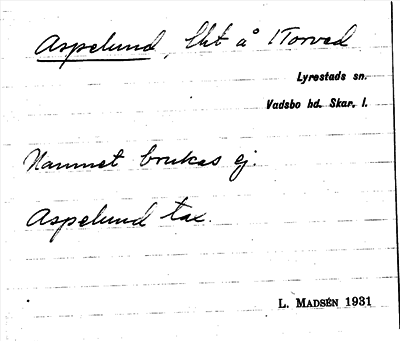 Aspelund, lht å Torved
Lyrestads sn.
Vadsbo hd. Skar. l.
Namnet brukas ej.
Aspelund tax.
L. MADSÉN 1931